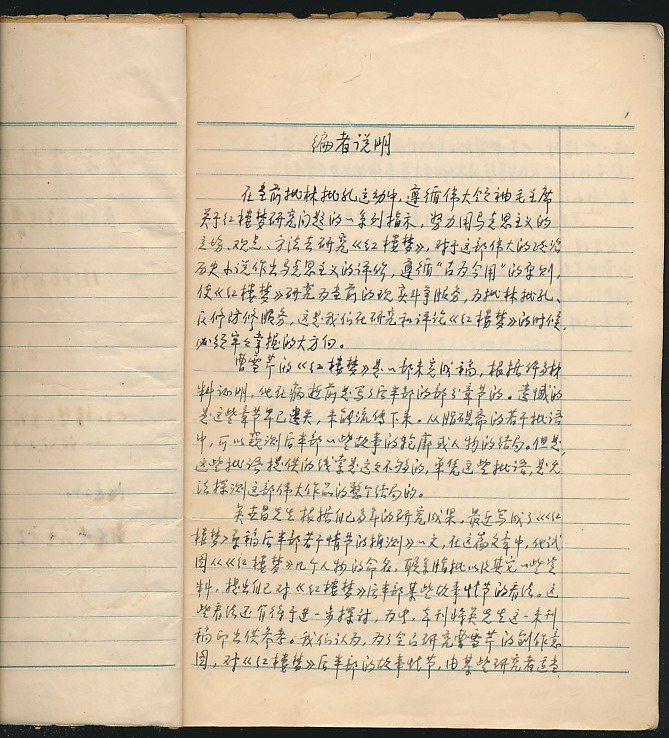 1
编者说明
在当前批林批孔运动中，遵循伟大领袖毛主席
关于红楼梦研究问题的一系列指示，努力用马克思主义的
立场、观点、方法去研究《红楼梦》，对于这部伟大的政治
历史小说作出马克思主义的评价，遵循“古为今用”的原则，
使《红楼梦》研究为当前的现实斗争服务，为批林批孔、
反修防修服务，这是我们在研究和评论《红楼梦》的时候，
必须牢牢掌握的大方向。
曹雪芹的《红楼梦》是一部未完成稿，根据许多材
料证明，他在病逝前是写了后半部的部分章节的。遗憾的
是这些章节早已遗失，未能流传下来。从脂砚斋的若干批语
中，可以窥测后半部一些故事的轮廓或人物的结局。但是，
这些批语提供的线索是远远不够的，单凭这些批语，是无
法探测这部伟大作品的整个结局的。
吴世昌先生根据自己多年的研究成果，最近写成了《《红
楼梦》原稿后半部若干情节的推测》一文，在这篇文章中，他试
图从《红楼梦》几个人物的命名，联系脂批以及其它一些资
料，提出自己对《红楼梦》后半部某些故事情节的看法。这
些看法还有待于进一步探讨，为此，本刊将吴先生这一未刊
稿印出供参考。我们认为，为了全面研究曹雪芹的创作意
图，对《红楼梦》后半部的故事情节，由某些研究者适当